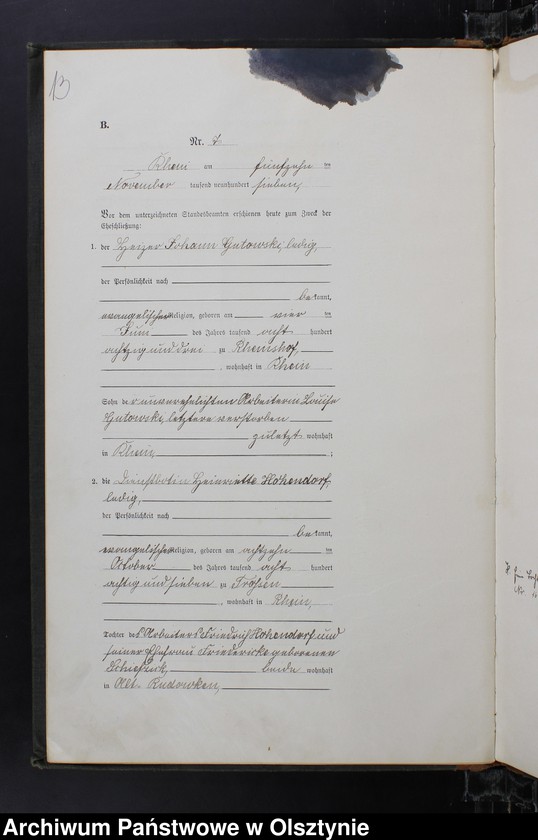 13
B.
Nr. 7.
Rhein am fünfzehn ten
November tausend neunhundert sieben,
Vor dem unterzeichneten Standesbeamten erschienen heute zum Zweck der
Eheschließung:
1. der Heizer Johann Gutowski, ledig,
der Persönlichkeit nach
bekannt,
evangelischer Religion, geboren am vier ten
Juni des Jahres tausend acht hundert
achtzig und drei zu Rheinshof,
, wohnhaft in Rhein
Sohn der unverehelichten Arbeiterin Louise
Gutowski, letztere verstorben
zuletzt wohnhaft
in Rhein, ;
2. die Dienstbotin Heinriette Hohendorf,
ledig,
der Persönlichkeit nach
bekannt,
evangelischer Religion, geboren am achtzehn ten
Oktober des Jahres tausend acht hundert
achtzig und sieben zu
, wohnhaft in Rhein,
Tochter des Arbeiters Friedrich Hohendorf und
seiner Ehefrau Friedericke geborenen
beide wohnhaft
in Alt Rudowken,
Archiwum Państwowe w Olsztynie